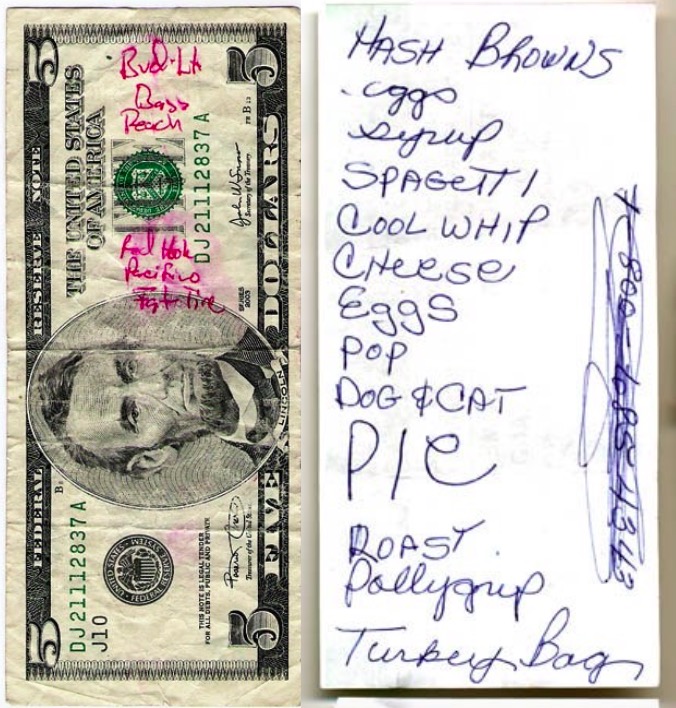 FEDERAL RESERVE NOTE
THE UNITED STATES
OF AMERICA
DJ21112837A
J10
DJ21112837A
THIS NOTE IS LEGAL TENDER
FOR ALL DEBTS, PUBLIC AND PRIVATE
Treasurer of the United States
Secretary of the Treasury
SERIES
2003
LINCOLN
FIVE DOLLARS
5
5
5
5
Bud-Lt
Bass
Peach
Red Hook
Pacifico
HASH BROWNS
eggs
syrup
SPAGETTI
COOL WHIP
CHEESE
EGGS
POP
DOG & CAT
PIE
ROAST
Pollygrip
Turkey Bag
1-800-685-4343